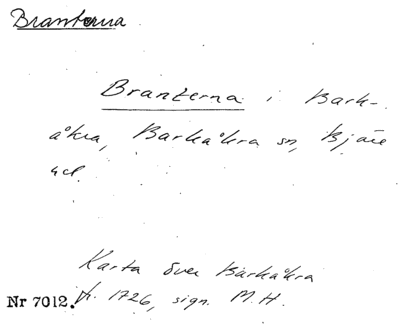 Branterna
Branterna i Bark-
åkra, Barkåkra sn, Bjäre
hd.
Karta över Barkåkra
fr. 1726, sign. M.H.
Nr 7012.